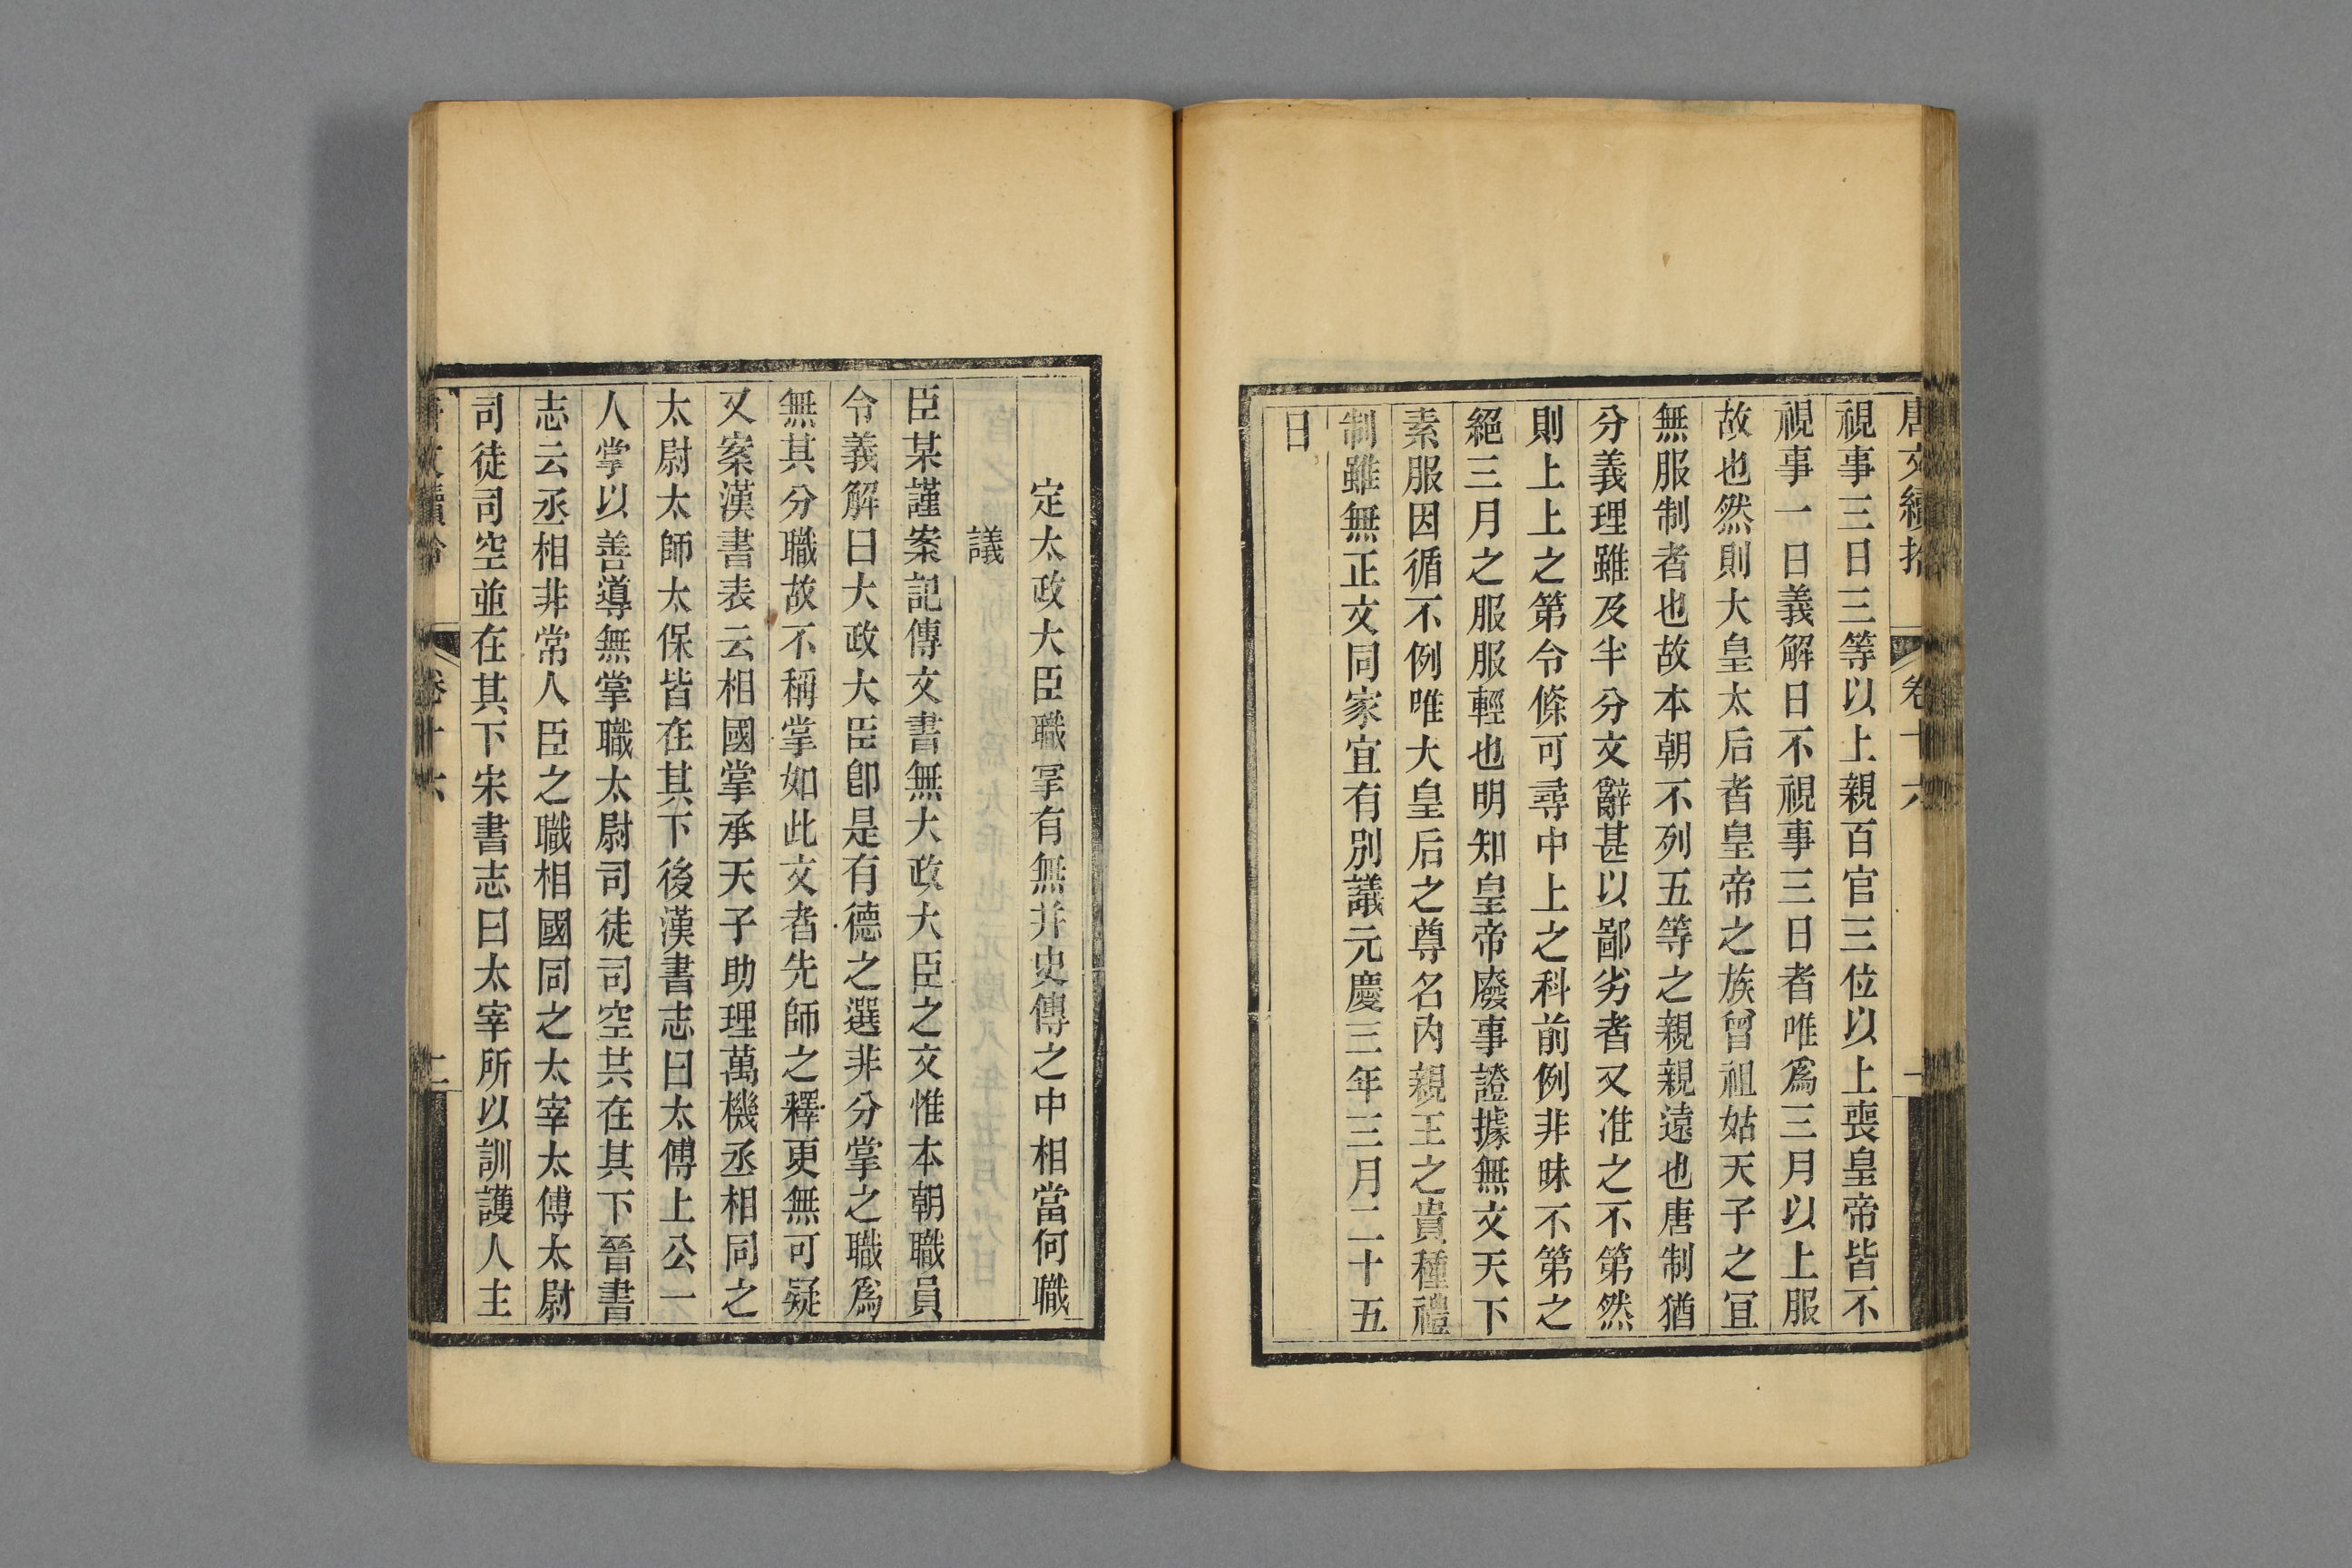 唐文續拾 卷十六 一
視事三日三等以上親百官三位以上喪皇帝皆不
視事一日義解曰不視事三日者唯爲三月以上服
故也然則大皇太后者皇帝之族曾祖姑天子之冝
無服制者也故本朝不列五等之親親遠也唐制猶
分義理雖及半分文辭甚以鄙劣者又准之不第然
則上上之第令條可尋中上之科前例非昧不第之
絕三月之服服輕也明知皇帝廢事證據無文天下
素服因循不例唯大皇后之尊名內親王之貴種禮
制雖無正文同家宜有別議元慶三年三月二十五
日
定太政大臣職掌有無并史傳之中相當何職
議
臣某謹案記傳文書無大政大臣之文惟本朝職員
令義解曰大政大臣卽是有德之選非分掌之職爲
無其分職故不稱掌如此文者先師之釋更無可疑
又案漢書表云相國掌承天子助理萬機丞相同之
太尉太師太保皆在其下後漢書志曰太傅上公一
人掌以善導無掌職太尉司徒司空共在其下晉書
志云丞相非常人臣之職相國同之太宰太傅太尉
司徒司空並在其下宋書志曰太宰所以訓護人主
唐文續拾 卷十六 二